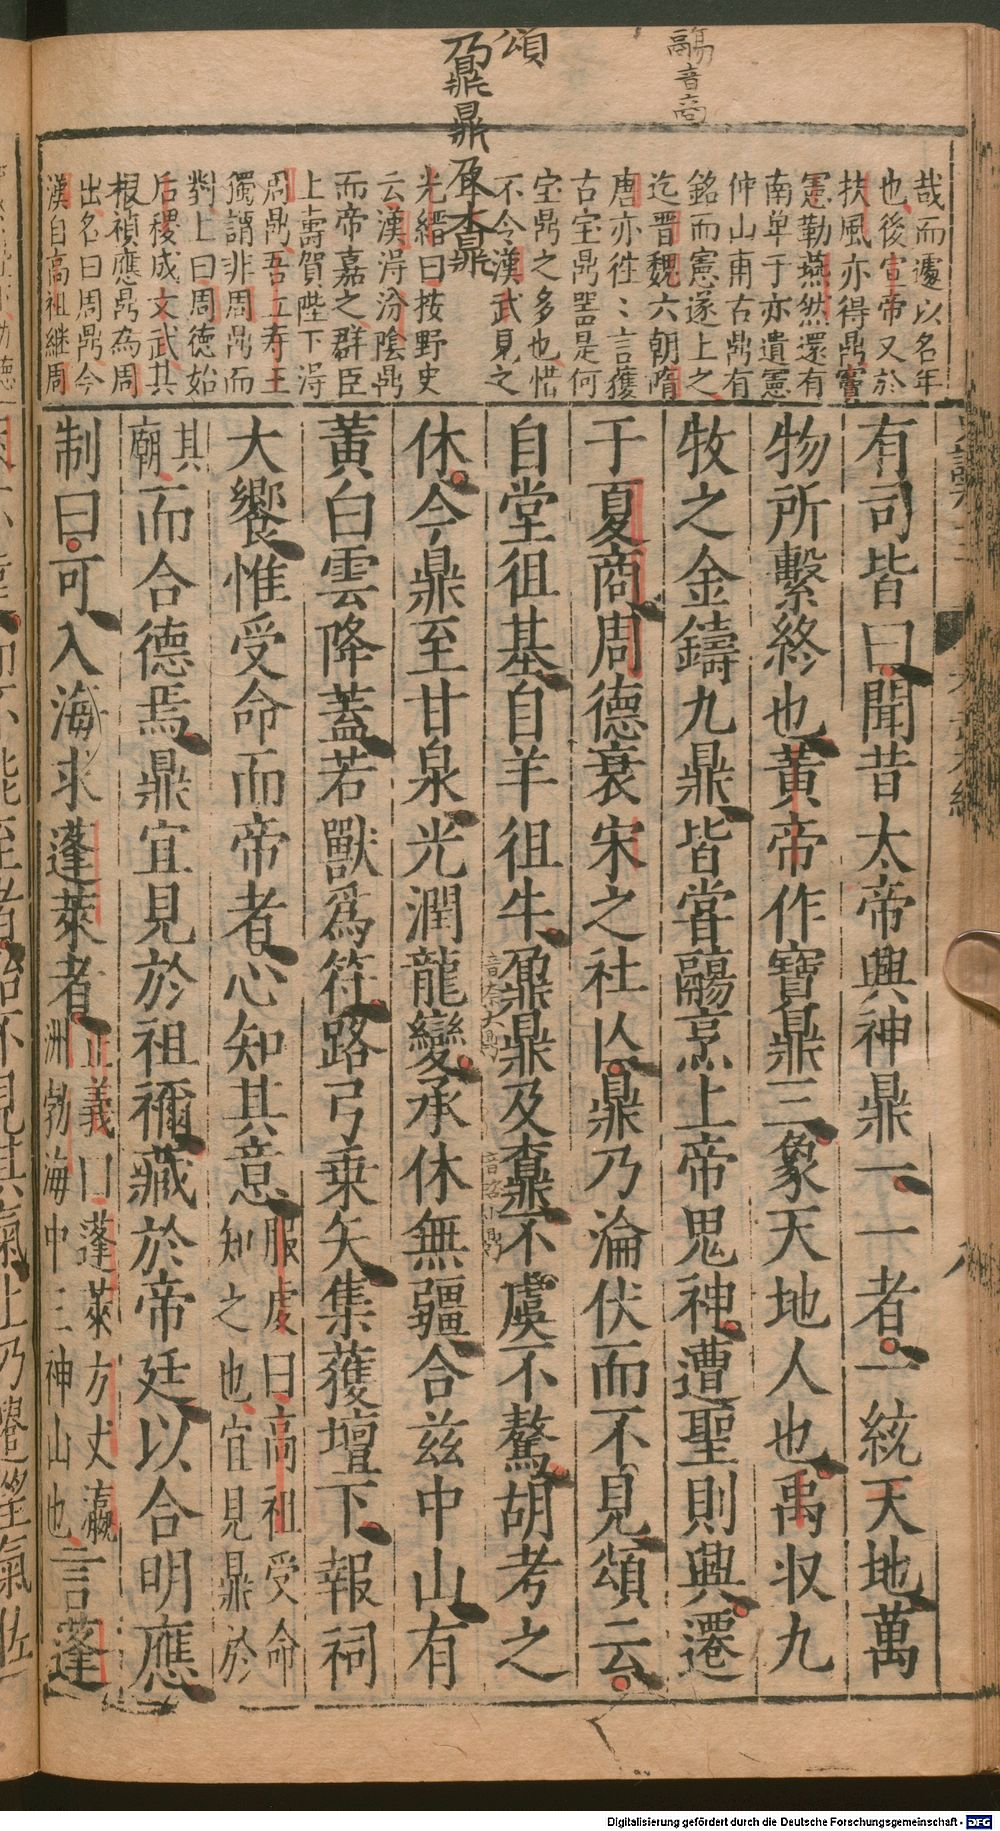 鬺音商
頌
鼐鼎及鼒
哉而遽以名年
也後宣帝又於
扶風亦得鼎竇
憲勒燕然還有
南單于亦遺憲
仲山甫古鼎有
銘而憲遂上之
迄晋魏六朝隋
唐亦徃〻言獲
古宝鼎噐是何
宝鼎之多也惜
不令漢武見之
光縉曰按野史
云漢淂汾陰鼎
而帝嘉之群臣
上壽賀陛下淂
周鼎吾丘寿王
獨謂非周鼎而
對上曰周徳始
后稷成文武其
根禎應鼎為周
出名曰周鼎今
漢自高祖継周
有司皆曰聞昔太帝興神鼎一一者一統天地萬
物所繫終也黃帝作寶鼎三象天地人也禹収九
牧之金鑄九鼎皆甞鬺烹上帝鬼神遭聖則興遷
于夏商周德衰宋之社亾鼎乃淪伏而不見頌云
自堂徂基自羊徂牛鼐鼎及鼒不虞不驁胡考之
休今鼎至甘泉光潤龍變承休無疆合兹中山有
黃白雲降蓋若獸爲符路弓乗矢集獲壇下報祠
大饗惟受命而帝者心知其意服虔曰高祖受命知之也宜見鼎於
其廟而合德焉鼎宜見於祖禰藏於帝廷以合明應
制曰可入海求蓬萊者正義曰蓬萊方丈瀛洲勃海中三神山也言蓬
音奈大鼎
Digitalisierung gefördert durch die Deutsche Forschungsgemeinschaft - DFG